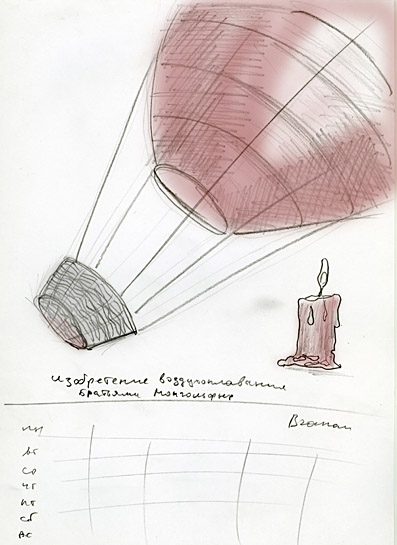 изобретение воздухоплавания
братьями Монгольфье
пн
вт
ср
чт
пт
сб
вс